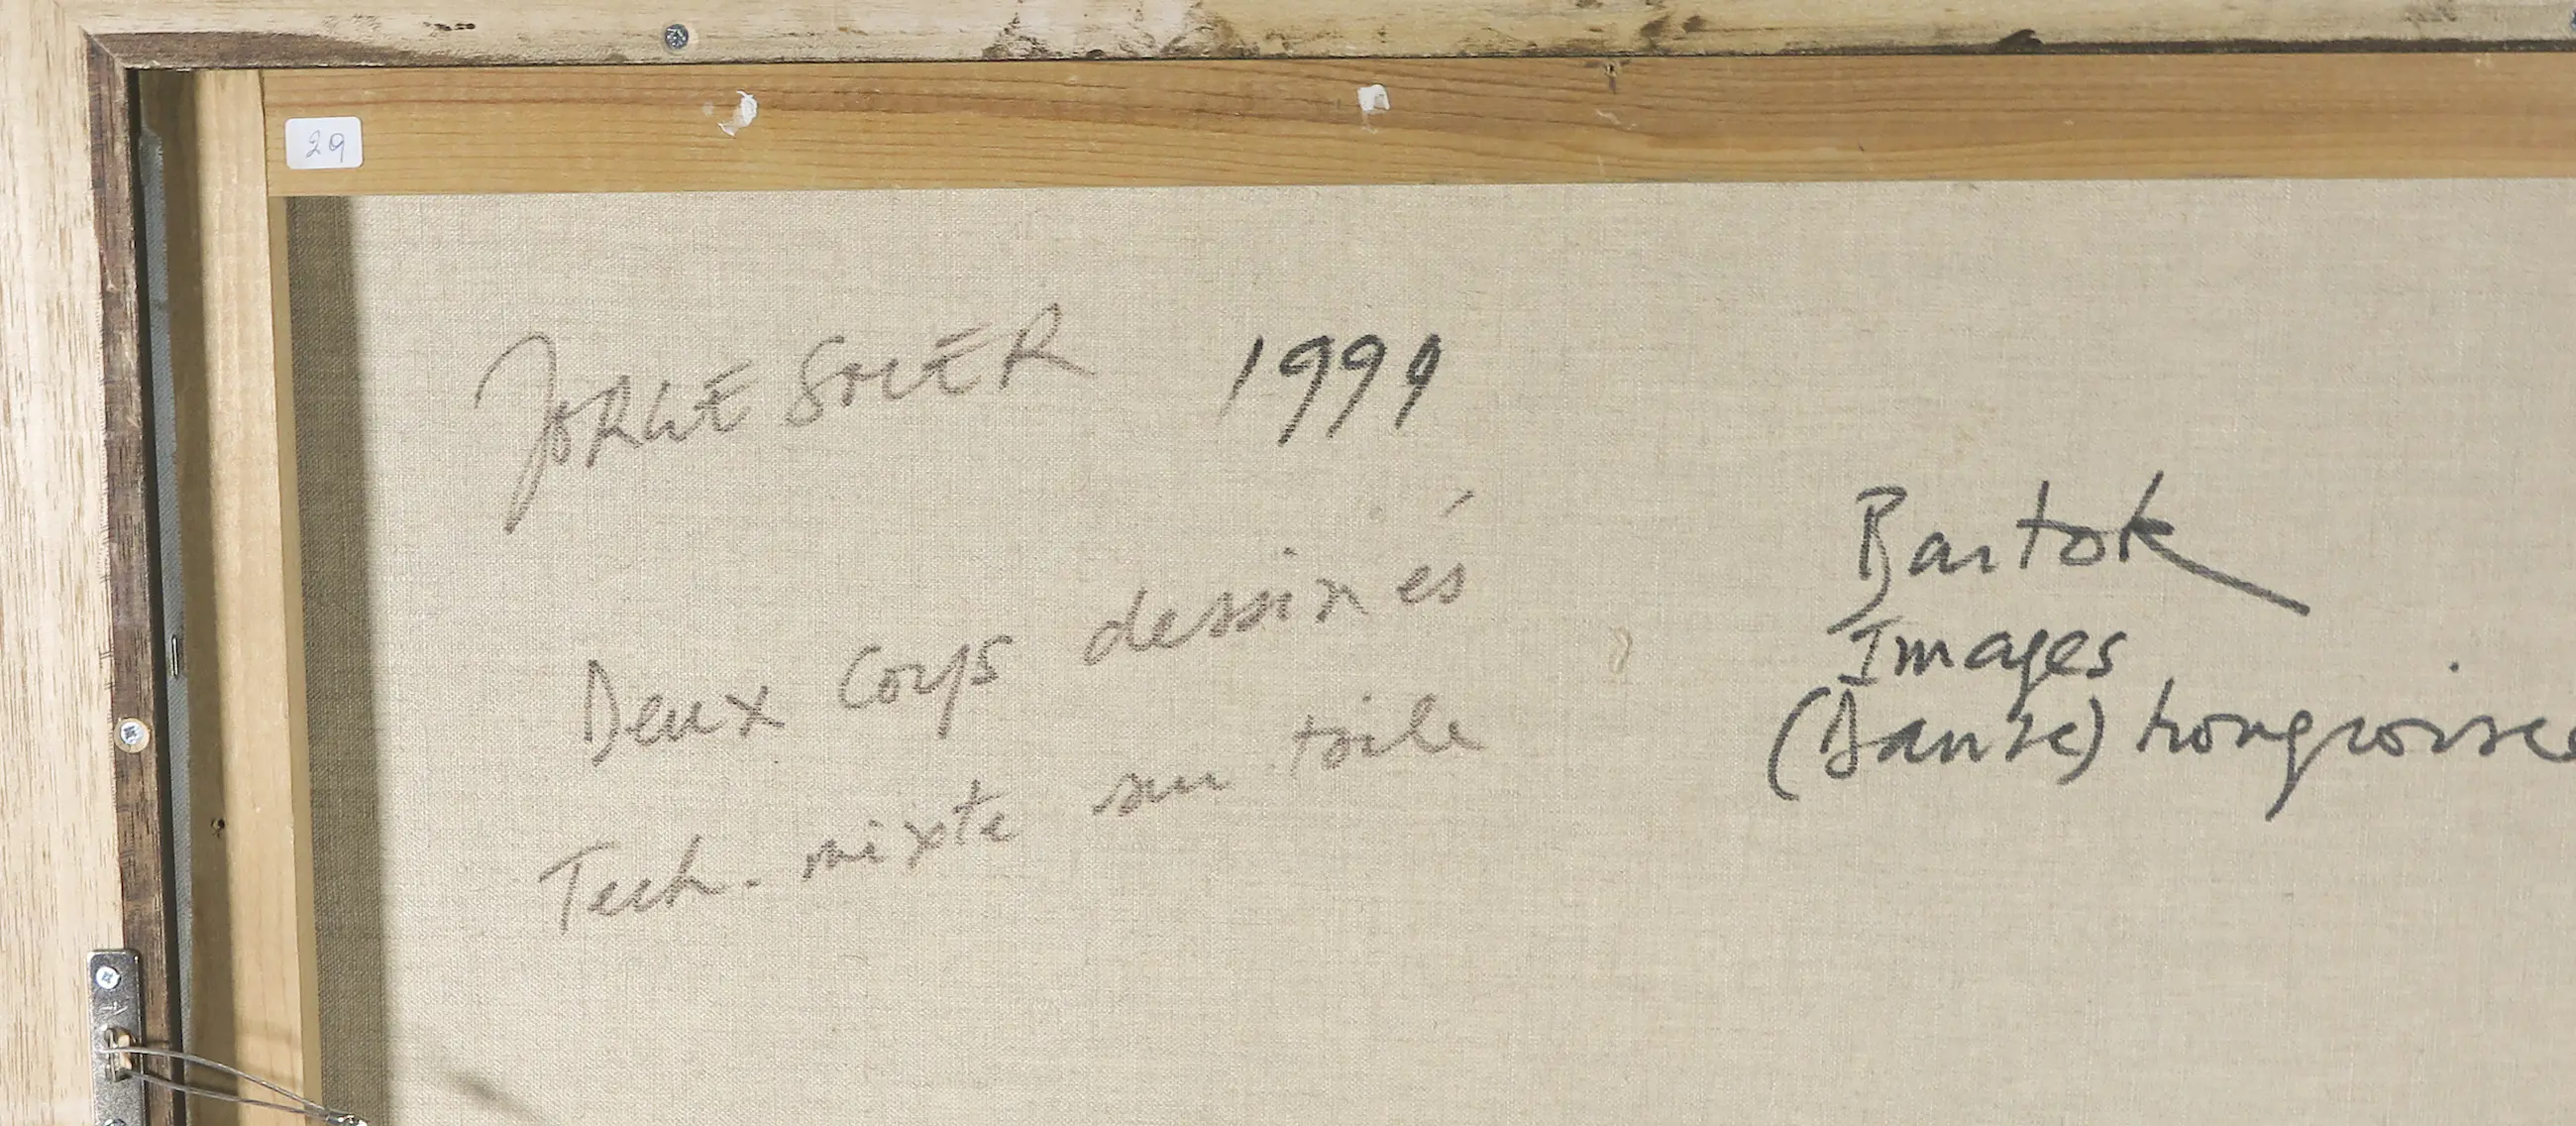 29
JORGE SOLER 1999
Deux Corps dessinés
Tech. mixte sur toile
Bartok
Images
(Danse) hongroise